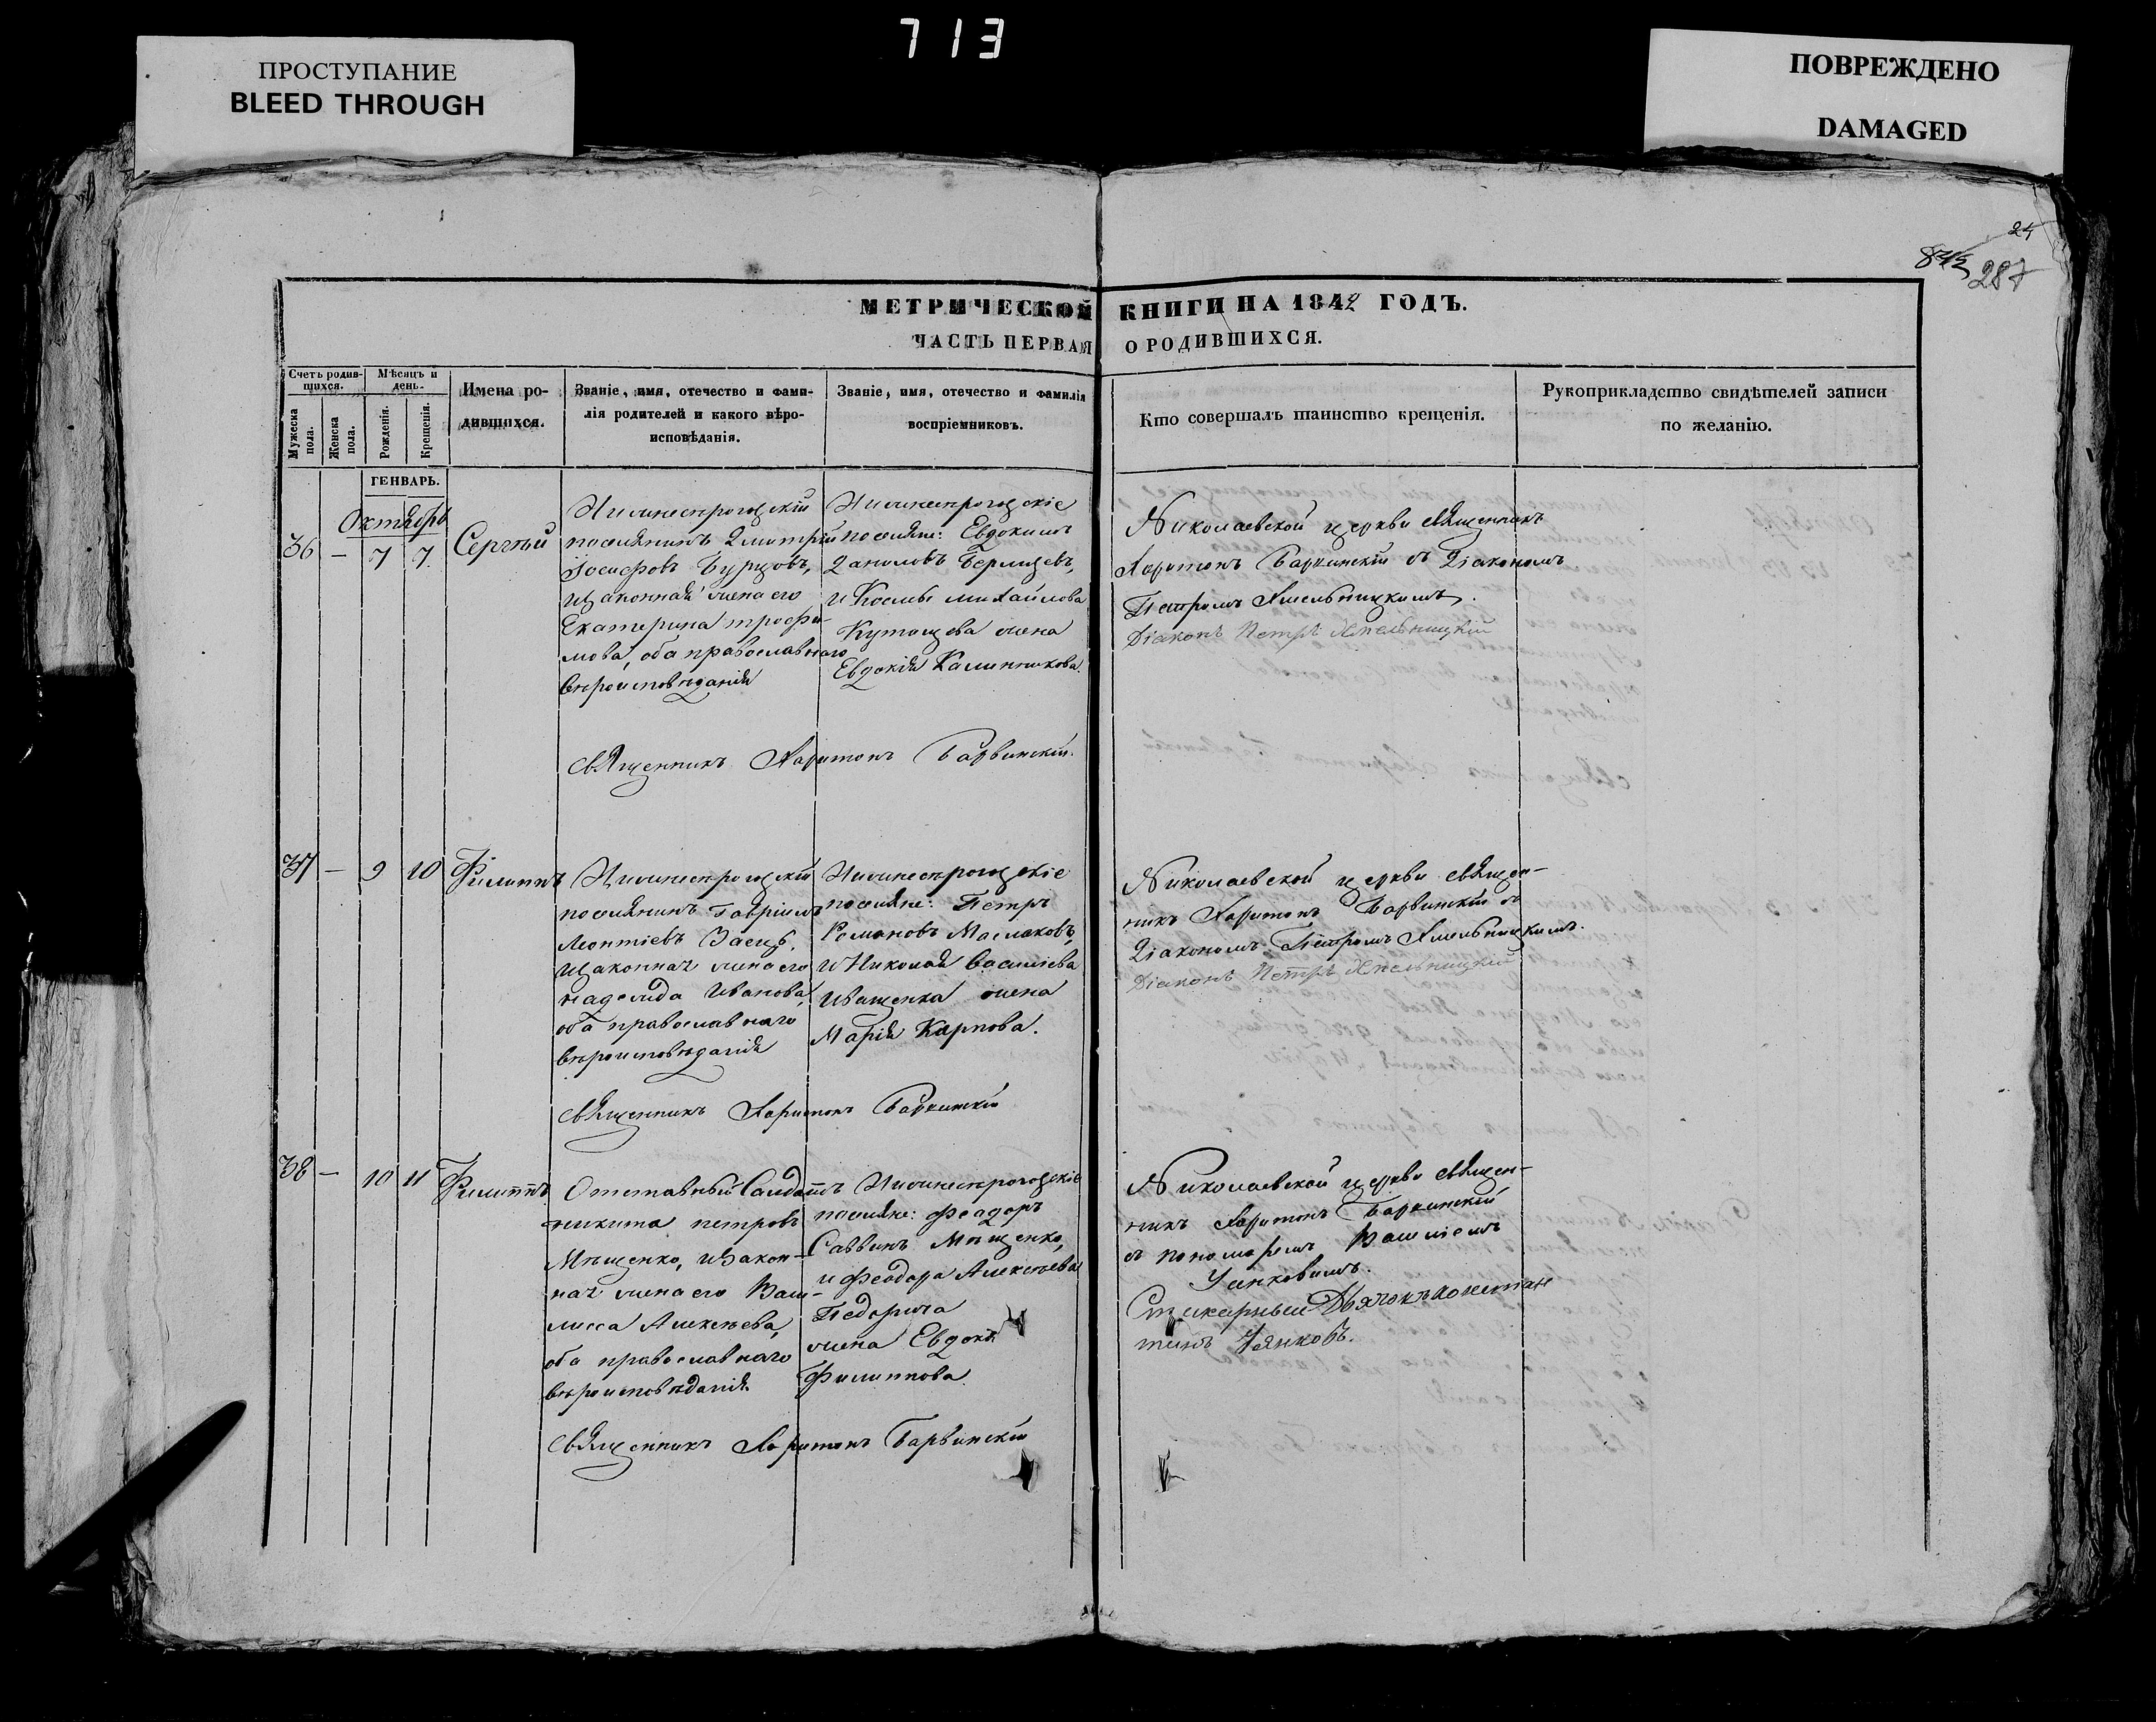 713
ПРОСТУПАНИЕ
BLEED THROUGH
ПОВРЕЖДЕНО
DAMAGED
24
287
МЕТРИЧЕСКОЙ КНИГИ НА 1842 ГОДЪ.
ЧАСТЬ ПЕРВАЯ О РОДИВШИХСЯ.
Счетъ родив-
шихся.
Мужеска
пола.
Женска
пола.
Мѣсяцъ и
день.
Рожденія.
Крещенія.
Имена ро-
дившихся.
Званіе, имя, отечество и фами-
лія родителей и какого вѣро-
исповѣданія.
Званіе, имя, отечество и фамилія
воспріемниковъ.
Кто совершалъ таинство крещенія.
Рукоприкладство свидѣтелей записи
по желанію.
ГЕНВАРЬ.
Октября
36 — 7 7 Сергѣй
Нижнесѣрогозскій
поселянинъ Дмитрій
Іосифовъ Бурцовъ,
и законная жена его
Екатерина трофи-
мова, оба православнаго
вѣроисповѣданія
Нижнесѣрогозскіе
поселяне: Евдокимъ
и Космы михайлова
жена
Евдокія Калинникова.
Николаевской церкви священникъ
Харитонъ Барвинскій съ Діакономъ
Петромъ Хмельницкимъ.
Діаконъ Петръ Хмельницкій
священникъ Харитонъ Барвинскій.
37 — 9 10 Филиппъ
Нижнесѣрогозскій
поселянинъ Гавріилъ
Леонтіевъ Заецъ,
и законная жена его
надежда Иванова,
оба православнаго
вѣроисповѣданія
Нижнесѣрогозскіе
поселяне: Петръ
Романовъ Маслаковъ,
и Николая Василіева
Иващенка жена
Марія Карпова.
Николаевской церкви священ-
никъ Харитонъ Барвинскій съ
Діакономъ Петромъ Хмельницкимъ.
Діаконъ Петръ Хмельницкій
священникъ Харитонъ Барвинскій
38 — 10 11 Филиппъ
Отставный Салдатъ
никита петровъ
Мищенко, и закон-
ная жена его Васи-
лисса Алексѣева,
оба православнаго
вѣроисповѣданія.
Нижнесѣрогозскіе
поселяне: феодоръ
Саввинъ Мищенко,
и феодора Алексѣева
жена Евдокія
Филиппова.
Николаевской церкви священ-
никъ Харитонъ Барвинскій
съ пономаремъ Василіемъ
Дьячокъ Констан
тинъ
священникъ Харитонъ Барвинскій